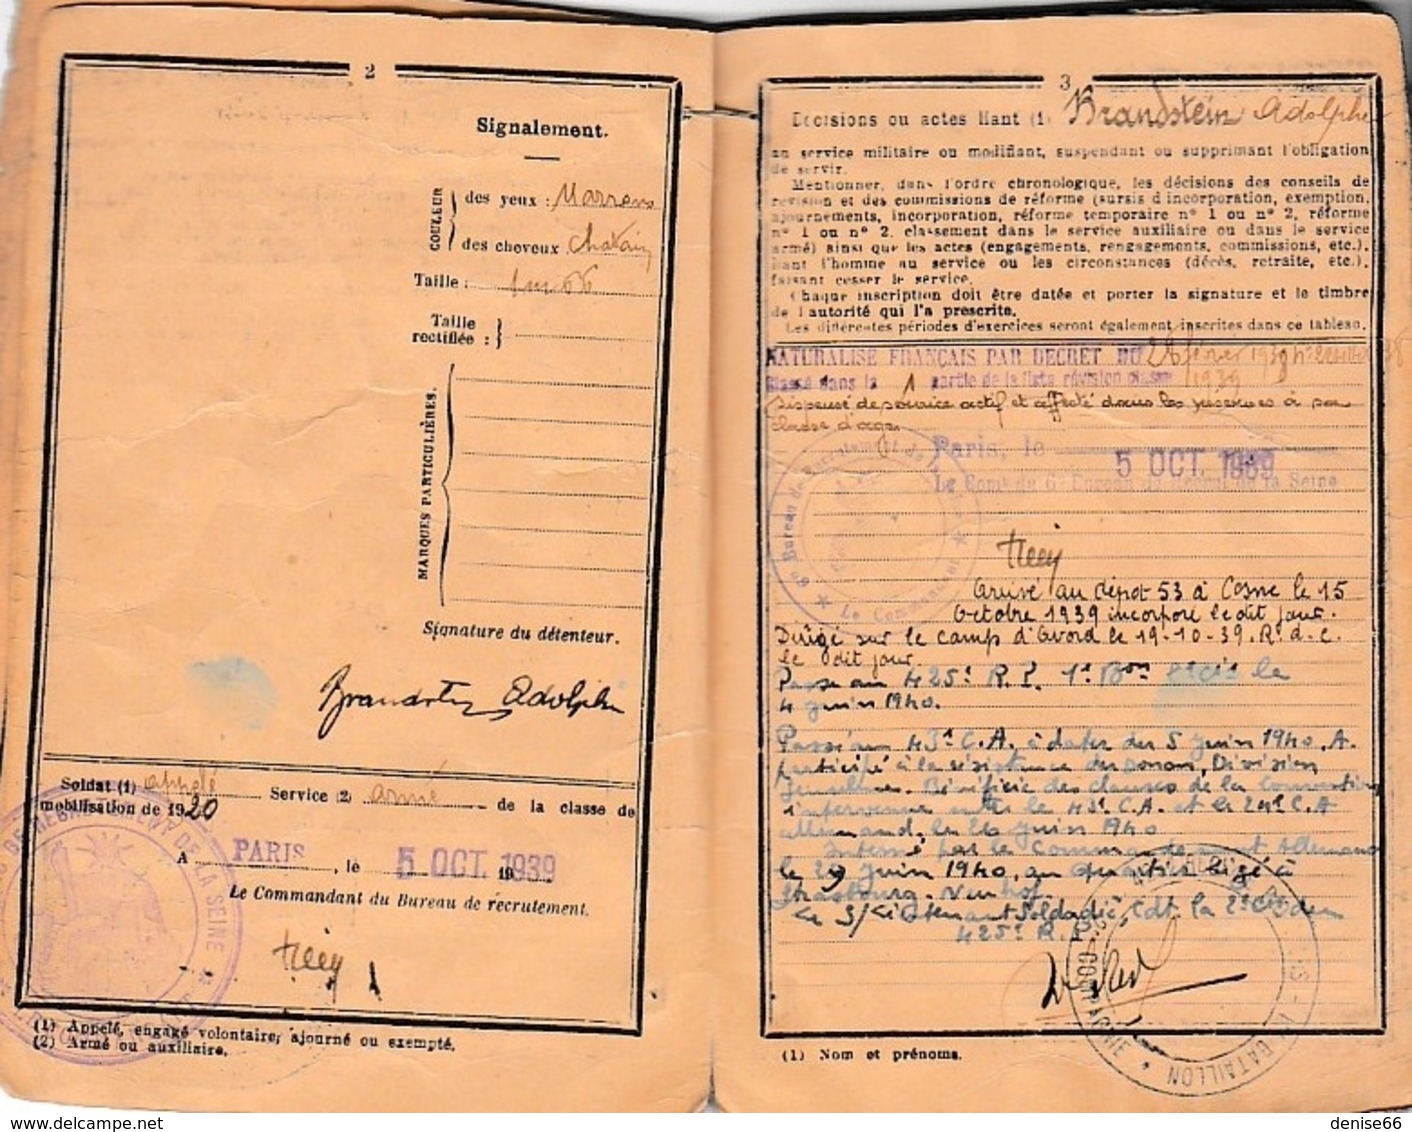 2
Signalement.
COULEUR
des yeux : Marrons
des cheveux Chatain
Taille : 1m66
Taille
rectifiée :
MARQUES PARTICULIÈRES.
Signature du détenteur.
Brandstein Adolphe
Soldat (1) appelé Service (2) armé de la classe de
mobilisation de 1920
A PARIS, le 5 OCT. 1939 19
Le Commandant du Bureau de recrutement.
(1) Appelé, engagé volontaire, ajourné ou exempté.
(2) Armé ou auxiliaire.
DE LA SEINE
3
Décisions ou actes liant (1) Brandstein Adolphe
au service militaire ou modifiant, suspendant ou supprimant l'obligation
de servir.
Mentionner, dans l'ordre chronologique, les décisions des conseils de
révision et des commissions de réforme (sursis d'incorporation, exemption,
ajournements, incorporation, réforme temporaire n° 1 ou n° 2, réforme
n° 1 ou n° 2, classement dans le service auxiliaire ou dans le service
armé) ainsi que les actes (engagements, rengagements, commissions, etc.),
liant l'homme au service ou les circonstances (décès, retraite, etc.),
faisant cesser le service.
Chaque inscription doit être datée et porter la signature et le timbre
de l'autorité qui l'a prescrite.
Les différentes périodes d'exercices seront également inscrites dans ce tableau.
NATURALISÉ FRANÇAIS PAR DECRET DU 28 février 1938
Classé dans la 1 partie de la liste révision classe 1939
dispensé de service actif et affecté dans les réserves à sa
classe d'age.
Paris, le 5 OCT. 1939
Le Comt du 6e Bureau de Recrut de la Seine
6e Bureau de Recrutement de
Le Commandant
Arrivé au dépot 53 à Cosne le 15
Octobre 1939 incorporé le dit jour.
Dirigé sur le camp d'Avord le 19-10-39. R. d. C.
le dit jour.
Passe au 425e R. P. 1er Bon 2e Cie le
4 Juin 1940.
Passé au 43e C.A. à dater du 5 Juin 1940. A
participé à la résistance du Donon, Division
Bénéficie des clauses de la convention
intervenue entre le 43e C.A. et le 24e C.A
allemand, le 26 Juin 1940
Interné par le Commandement Allemand
le 29 Juin 1940, au quartier Lizé à
Strasbourg-Neuhof.
Le S/Lieutenant Soldadié, Cdt. la 2e Cie du
425e R. P.
COMPAGNIE
BATAILLON
(1) Nom et prénoms.
denise66